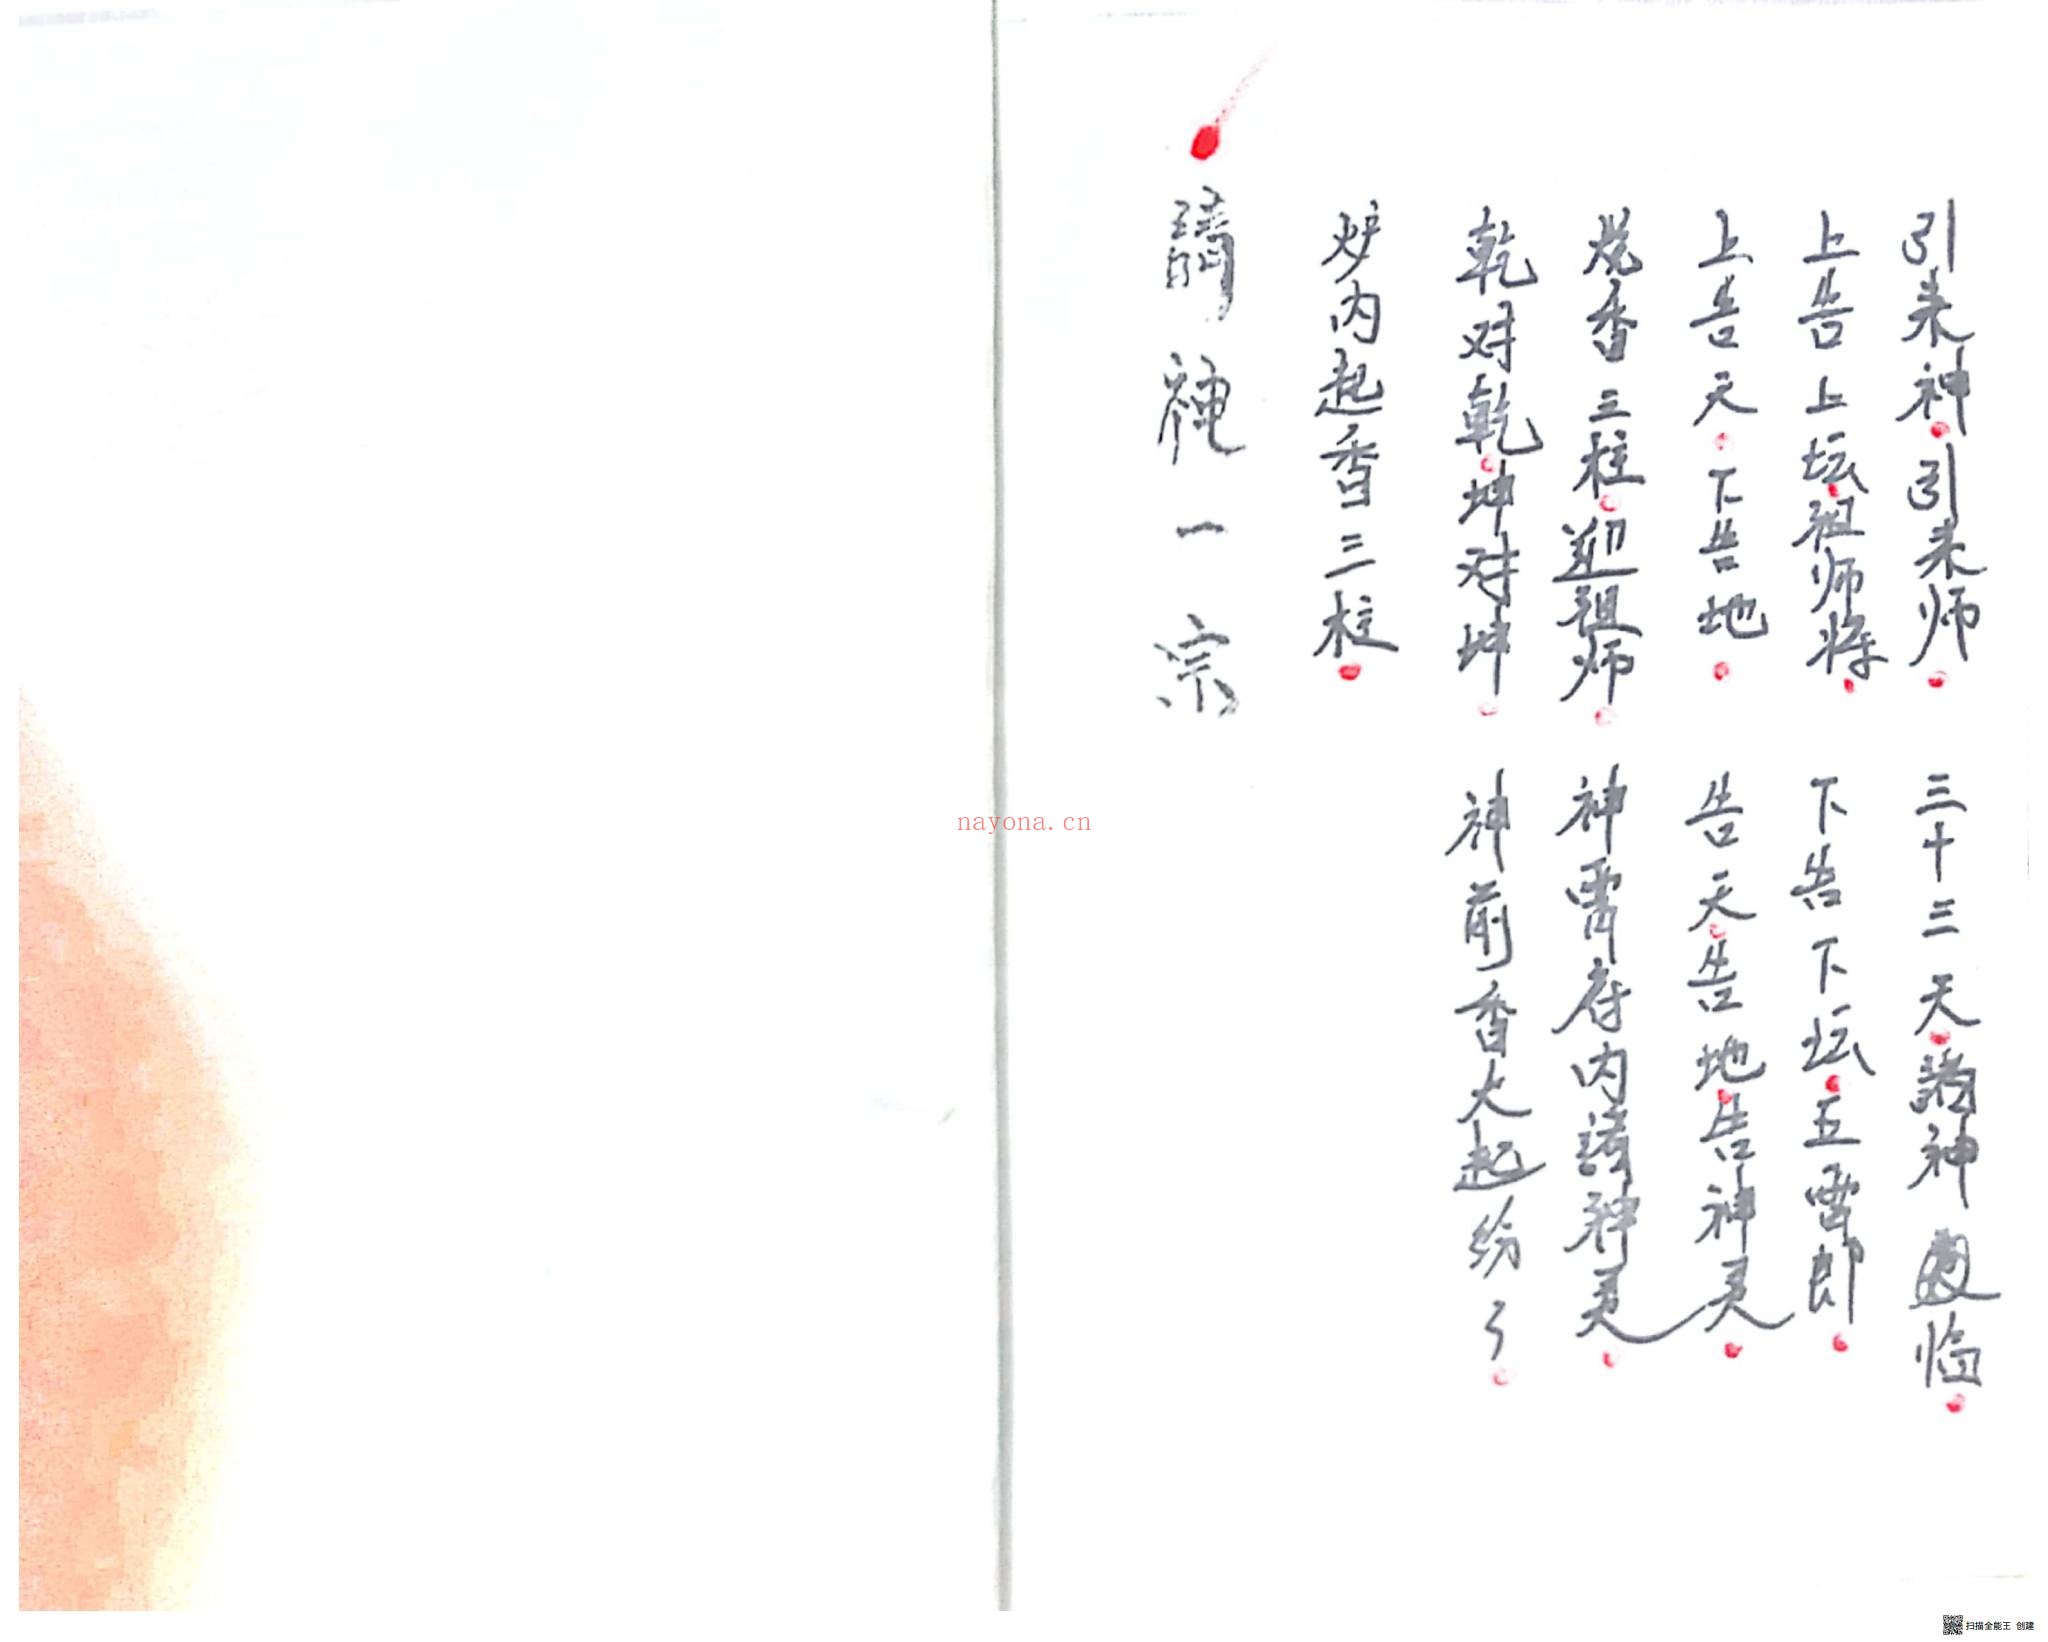 請神一宗
炉内起香三柱
乾对乾坤对坤 神前香大起纷了
烧香三柱迎祖师 神霄府内請神灵
上告天下告地 告天告地告神灵
上告上坛祖师将 下告下坛五雷郎
引来神引来师 三十三天諸神临
nayona.cn
扫描全能王 创建